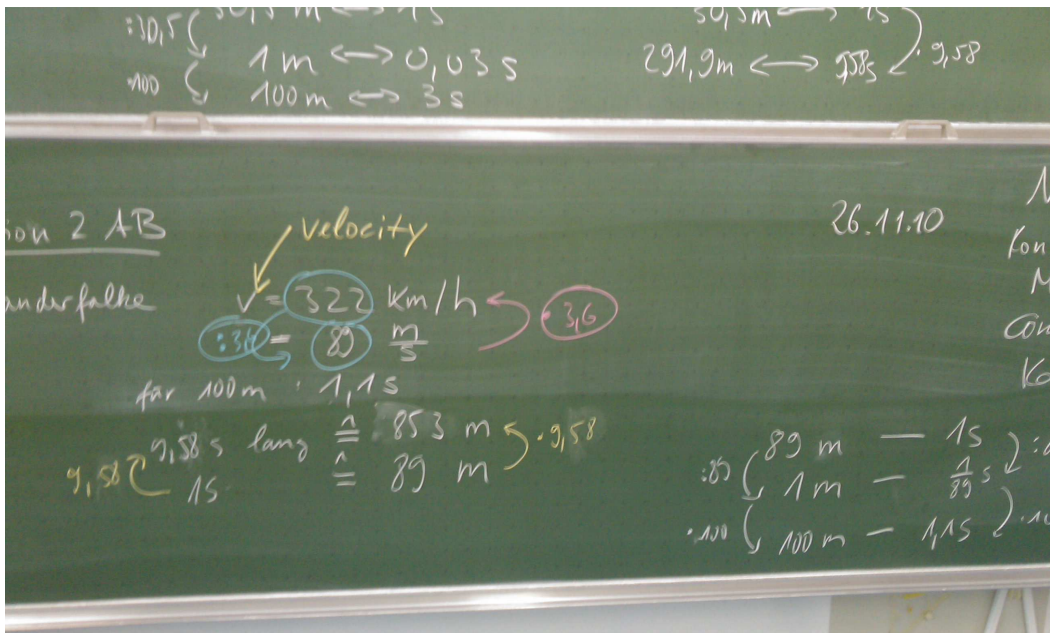 :30,5 30,5m ↔ 1s
1m ↔ 0,03s
·100 100m ↔ 3s
30,5m ↔ 1s
291,9m ↔ 9,58s ·9,58
ion 2 AB
velocity
26.11.10
anderfalke v = 322 km/h ·3,6
:3,6 = 89 m/s
für 100m : 1,1s
9,58s lang ≙ 853 m ·9,58
9,58 1s ≙ 89 m
89m — 1s
:89 1m — 1/89 s
·100 100m — 1,1s